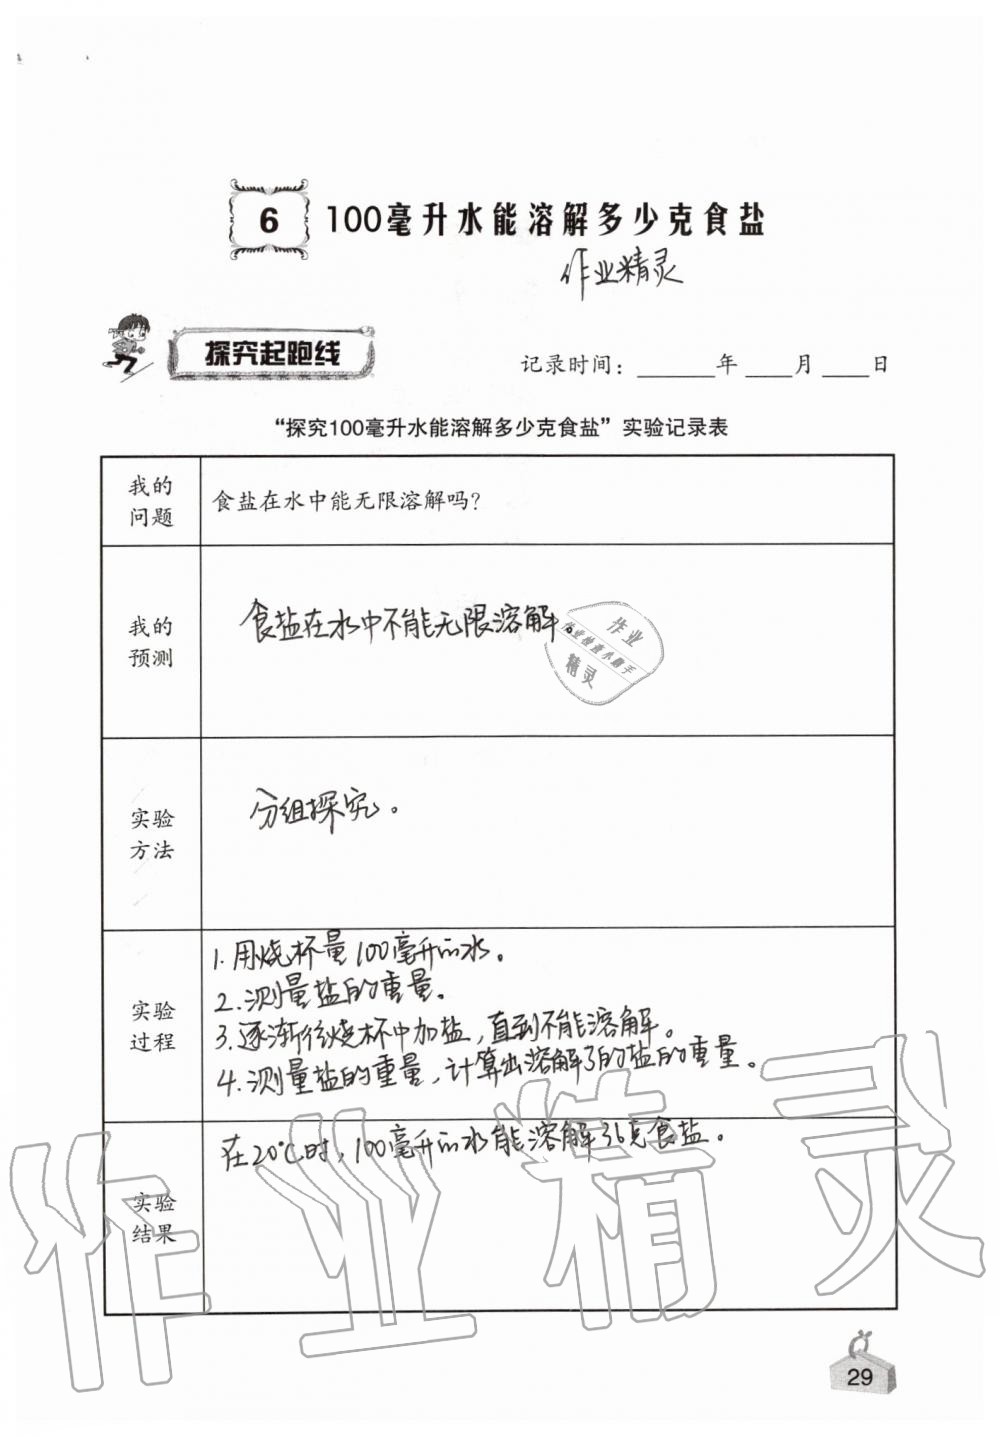 6 100毫升水能溶解多少克食盐
作业精灵
探究起跑线
记录时间：______年____月____日
“探究100毫升水能溶解多少克食盐”实验记录表
我的
问题
食盐在水中能无限溶解吗？
我的
预测
食盐在水中不能无限溶解。
作业
作业快速小助手
精灵
实验
方法
分组探究。
实验
过程
1.用烧杯量100毫升的水。
2.测量盐的重量。
3.逐渐往烧杯中加盐，直到不能溶解。
4.测量盐的重量，计算出溶解了的盐的重量。
实验
结果
在20℃时，100毫升的水能溶解36克食盐。
作业精灵
29